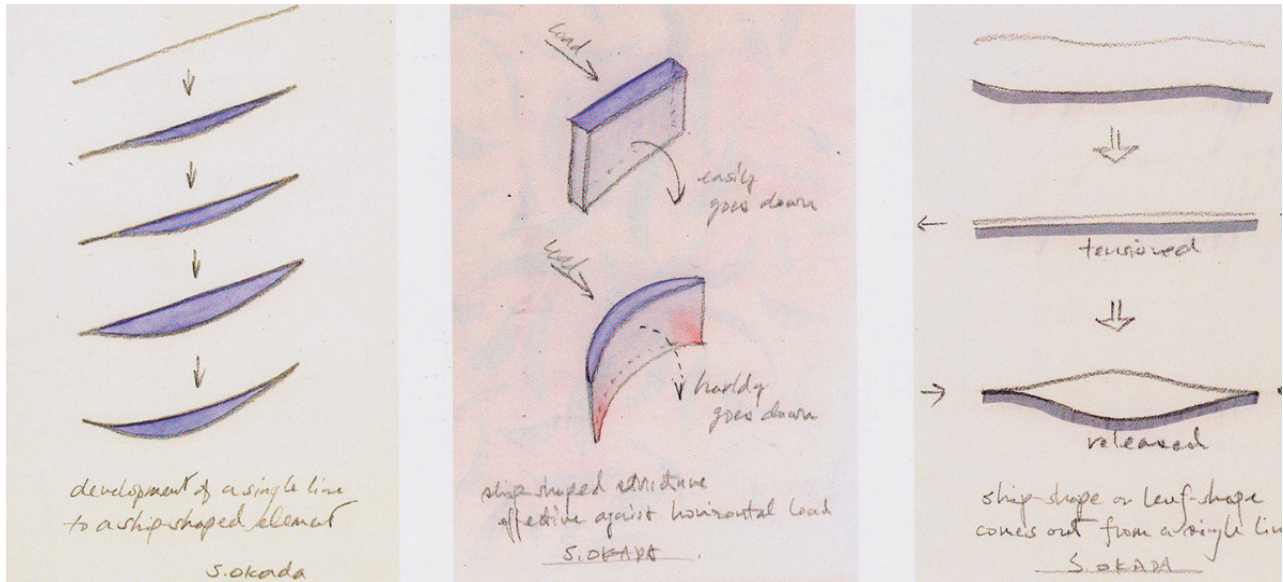 development of a single line
to a ship-shaped element
S.Okada
load
easily
goes down
load
hardly
goes down
ship-shaped structure
effective against horizontal load
S.OKADA
tensioned
released
ship-shape or leaf-shape
comes out from a single line
S.OKADA